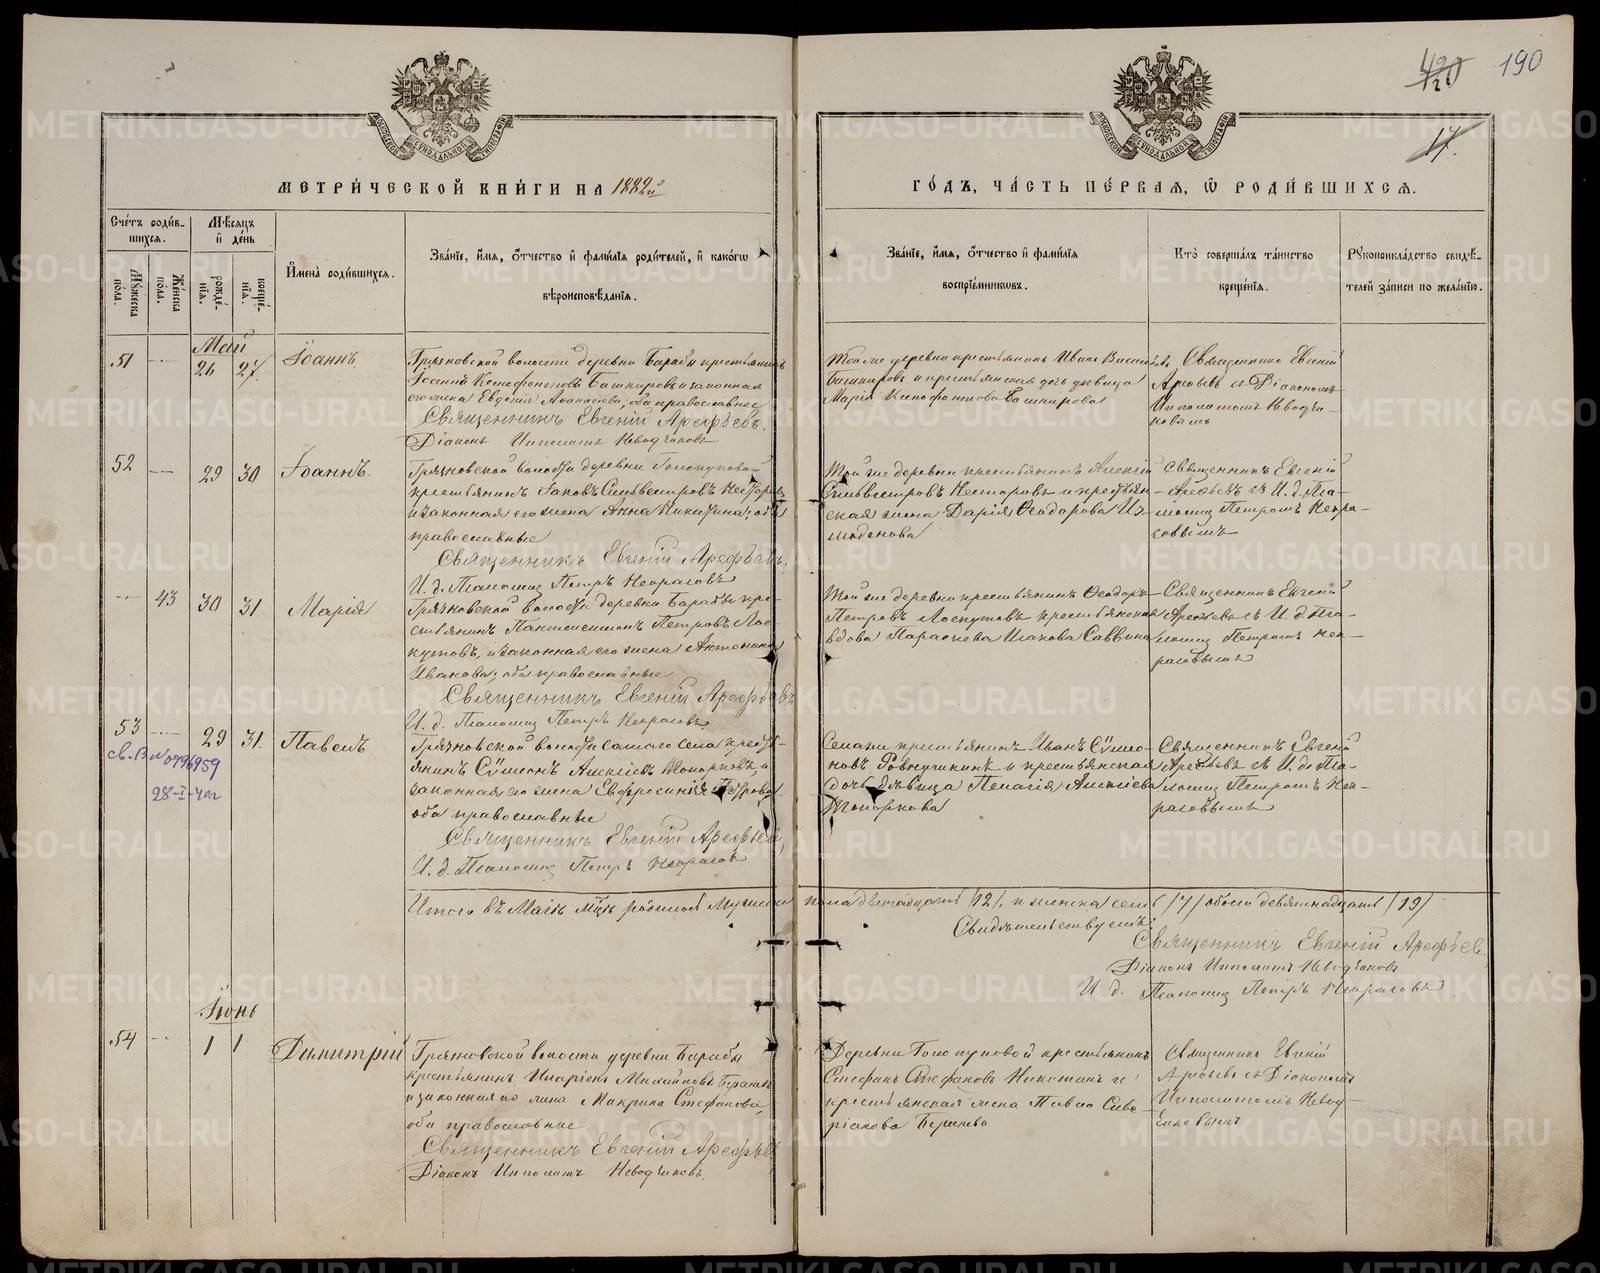 420 190
17.
МЕТРИ́ЧЕСКОЙ КНИ́ГИ НА 1882й
ГО́ДЪ, ЧА́СТЬ ПЕ́РВАЯ, Ѿ РОДИ́ВШИХСЯ.
Сче́тъ роди́в-
шихся.
Мѣ́сяцъ
и҆ де́нь
Мꙋ́жеска
по́ла.
Же́нска
по́ла.
рожде́-
нїя.
креще́-
нїя.
И҆мена̀ роди́вшихся.
Зва́нїе, и҆́мя, ѻ҆́тчество и҆ фами́лїѧ роди́телей, и҆ како́гѡ
вѣроисповѣ́данїя.
Зва́нїе, и҆́мя, ѻ҆́тчество и҆ фами́лїя
воспрїе́мникѡвъ.
Кто̀ соверша́лъ та́инство
креще́нїя.
Рꙋкоприкла́дство свидѣ́-
телей за́писи по жела́нїю.
Май
51 — 26 27. Іоаннъ
Грязновской волости деревни Барабы крестьянинъ
Іоаннъ Ксенофонтовъ Башкировъ и законная
его жена Евдокія Аѳанасіева, оба православные
Священникъ Евгеній Арефьевъ.
Діаконъ Ипполитъ Неводчиковъ
Той же деревни крестьянинъ Иванъ
Башкировъ и крестьянская дочь девица
Марія Ксенофонтова Башкирова
Священникъ Евгеній
Арефьевъ съ Діакономъ
Ипполитомъ Неводчи-
ковымъ
52 — 29 30 Іоаннъ
Грязновской волости деревни Голопуповой
крестьянинъ Іаковъ Сильвестровъ Несторовъ
и законная его жена Анна Никитина; оба
православные
Священникъ Евгеній Арефьевъ.
И. д. Псаломщ. Петръ Некрасовъ
Той же деревни крестьянинъ Алексій
Сильвестровъ Несторовъ и крестьян-
ская жена Дарія Ѳеодорова Из-
моденова
Священникъ Евгеній
Арефьевъ съ И. д. Пса-
ломщ. Петромъ Некра-
совымъ
— 43 30 31 Марія
Грязновской волости деревни Барабы кре-
стьянинъ Пантелеимонъ Петровъ Лос-
кутовъ, и законная его жена Антонина
Иванова; оба православные
Священникъ Евгеній Арефьевъ
И. д. Псаломщ. Петръ Некрасовъ
Той же деревни крестьянинъ Ѳеодоръ
Петровъ Лоскутовъ крестьянская
вдова Параскева Исакова Саввина
Священникъ Евгеній
Арефьевъ съ И. д. Пса-
ломщ. Петромъ Нек-
расовымъ
53 — 29 31. Павелъ
св. В № 0996959
28-I-
Грязновской волости самаго села кресть-
янинъ Сѵмеонъ Алексіевъ Топорковъ, и
законная его жена Евфросинія Петрова
оба православные
Священникъ Евгеній Арефьевъ,
И. д. Псаломщ. Петръ Некрасовъ
Села крестьянинъ Иванъ Сѵмео-
новъ и крестьянская
дочь дѣвица Пелагія Алексіева
Топоркова
Священникъ Евгеній
Арефьевъ съ И. д. Пса-
ломщ. Петромъ Нек-
расовымъ
Итого въ Маѣ мцѣ родилось мужеска пола двенадцать /12/, и женска семь /7/ обоего девятнадцать /19/
Свидѣтельствуемъ:
Священникъ Евгеній Арефьевъ,
Діаконъ Ипполитъ Неводчиковъ
И. д. Псаломщ. Петръ Некрасовъ
Іюнь
54 — 1 1 Димитрій
Грязновской волости деревни Барабы
крестьянинъ Иларіонъ Михайловъ
и законная его жена Макрина Стефанова,
оба православные
Священникъ Евгеній Арефьевъ
Діаконъ Ипполитъ Неводчиковъ.
Деревни Голопуповой крестьянинъ
Стефанъ Стефановъ Никитинъ и
крестьянская жена
Священникъ Евгеній
Арефьевъ съ Діакономъ
Ипполитомъ Невод-
чиковымъ
METRIKI.GASO-URAL.RU